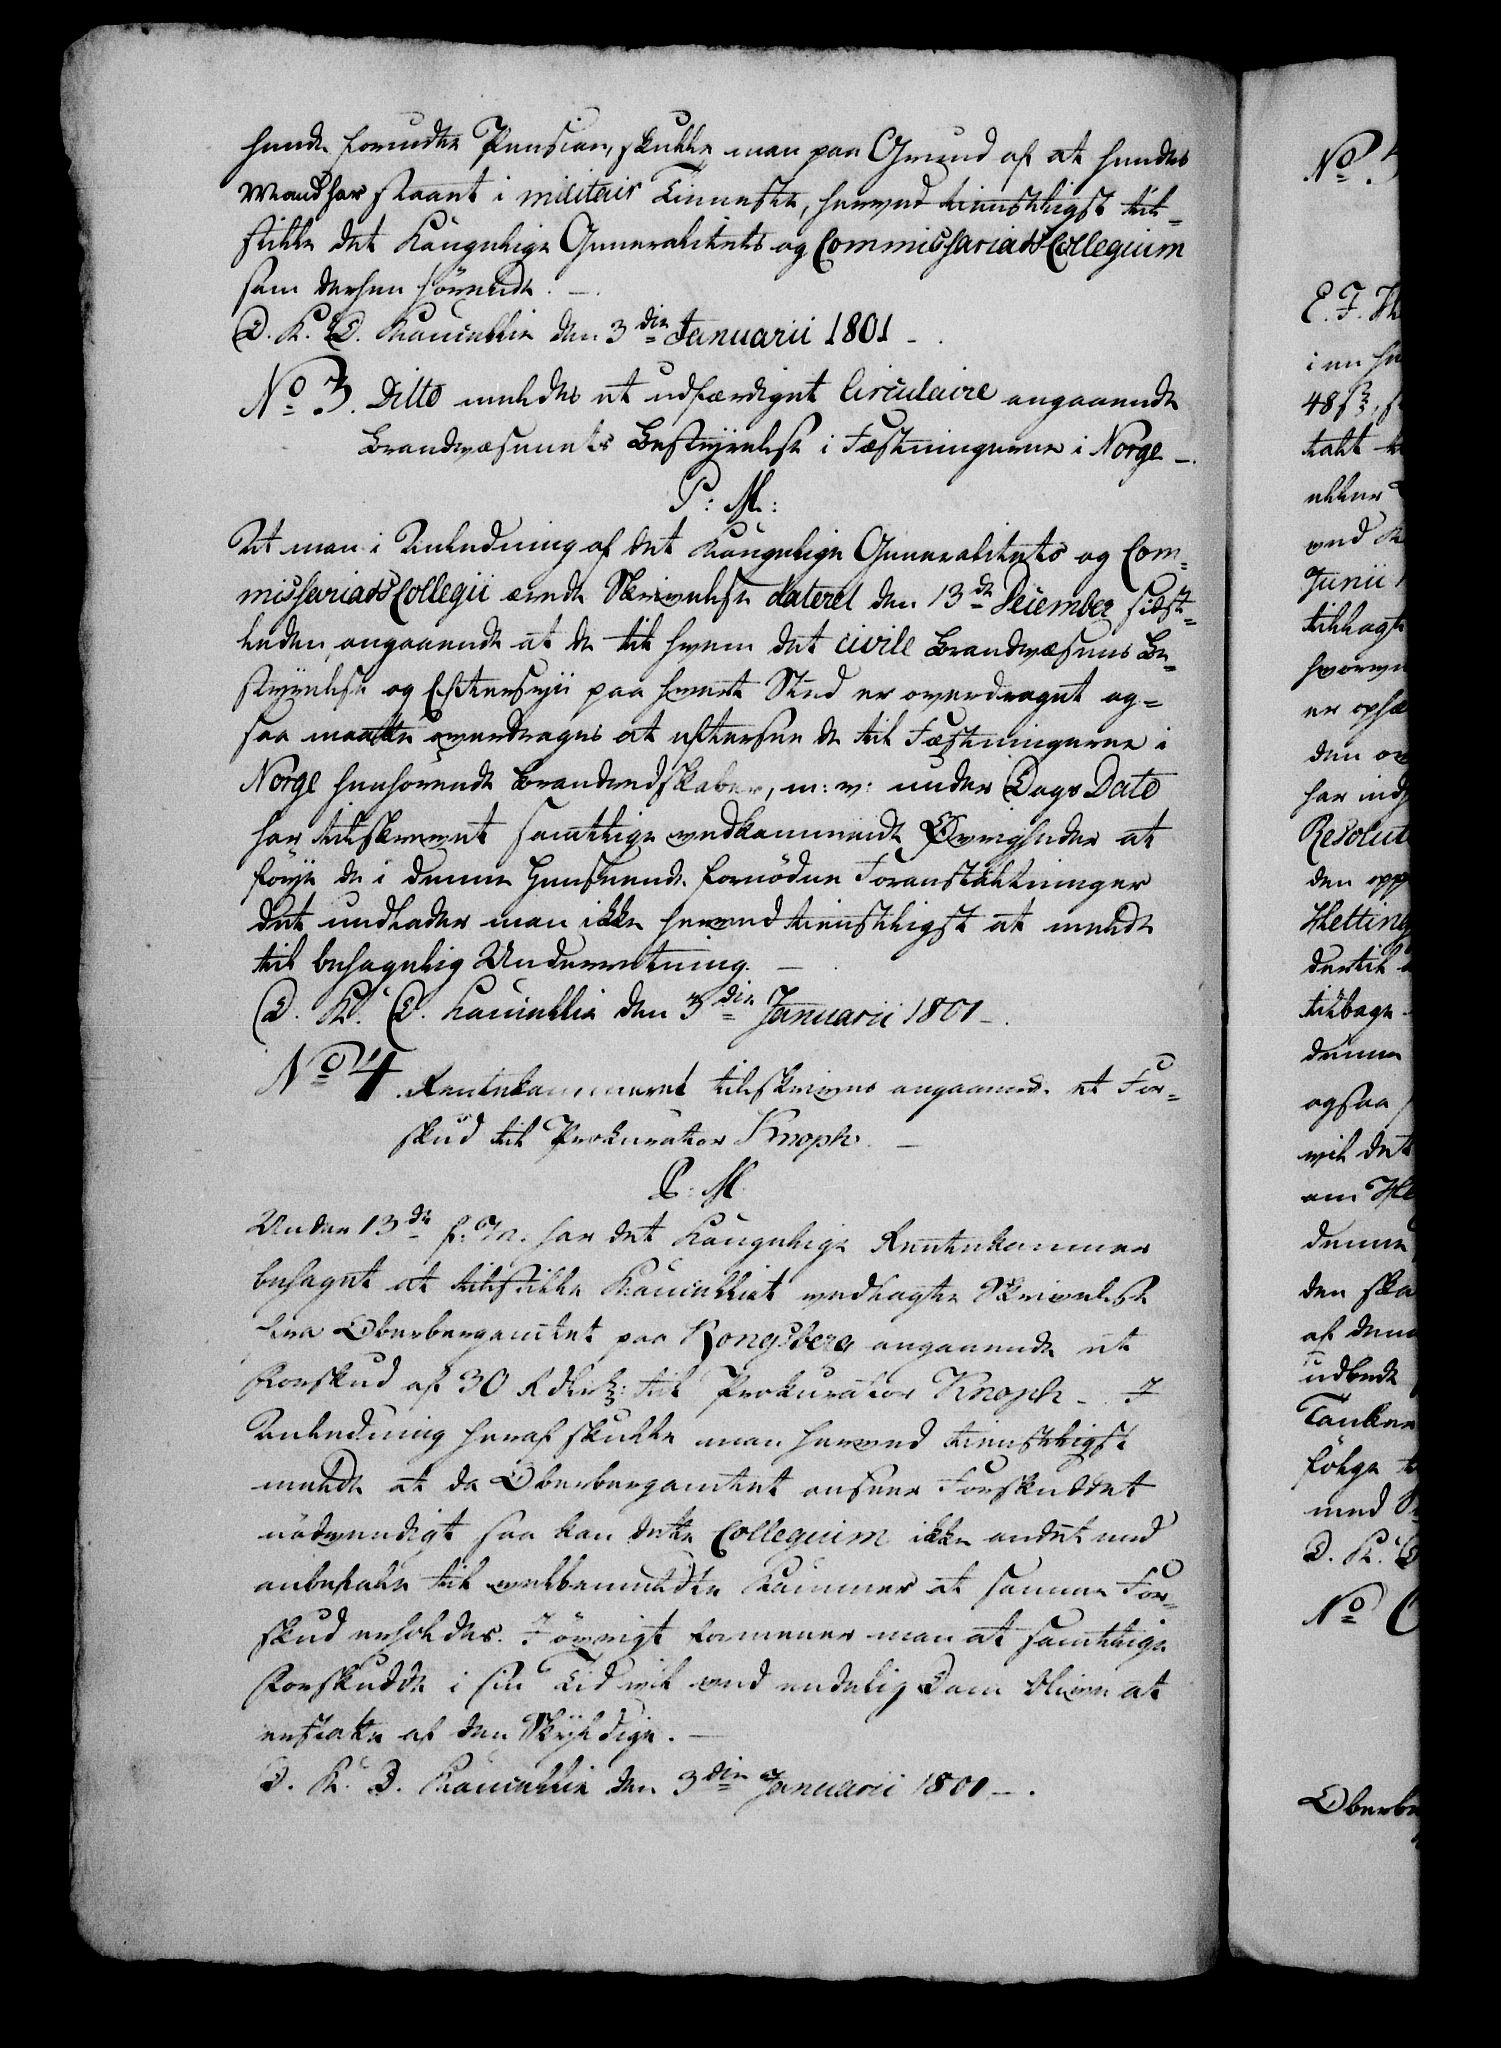 hende forundte Pension, skulle man paa Grund af at hendes
Mand har staaet i militair Tieneste, herved tienstligst til-
stille det Kongelige Generalitets og Commissariats Collegium
som dersen hørende. –
D. K. D. Kancellie den 3die Januarii 1801 –.
No 3. Ditto meldes et udfærdiget Circulaire angaaende
Brandvæsenets Bestyrelse i Fæstningerne i Norge –.
P: M:
At man i Anledning af det Kongelige Generalitets og Com-
missariats Collegii ærede Skrivelse dateret den 13de December sidst-
leden, angaaende at de til hvem det civile Brandvæsens Be-
styrelse og Eftersyn paa hvert Sted er overdraget og-
saa maatte overdrages at eftersee de til Fæstningerne i
Norge henhørende Brandredskaber, m: v: under Dags Dato
har tilskrevet samtlige vedkommende Øvrigheder at
føye de i denne Henseende fornødne Foranstaltninger
det undlader man ikke herved tienstligst at melde
til behagelig Underretning. –
D. K. D. Cancellie den 3die Januarii 1801 –.
No 4. Rentekammeret tilskrives angaaende et For-
skud til Prokurator Knoph. –
P: M:
Under 13de f: M. har det Kongelige Rentekammer
behaget at tilstille Kancelliet vedlagte Skrivelse
fra Oberbergamtet paa Kongsberg angaaende et
Forskud af 30 Rdlr: til Prokurator Knoph – . I
Anledning heraf skulle man herved tienstligst
melde at da Oberbergamtet anseer Forskuddet
nødvendigt saa kan dette Collegium ikke andet end
anbefale til velbemeldte Kammer at samme For-
skud erholdes. I øvrigt formener man at samtlige
Forskudde i sin Tid vil ved endelig Dom blive at
erstatte af den Skyldige. –
D. K. D. Kancellie den 3die Januarii 1801 –.
No 5
E. F. Th
i en
48 s
takt
eller
ved K
Junii
tillagt
hvorve
er ophæ
den ov
har ind
Resolut
den opp
Hetting
dertil
tilbage
denne
ogsaa
vil det
om He
denne
den ska
af den
udbede
Tanker
følge
med
D. K. D
No
Oberbe